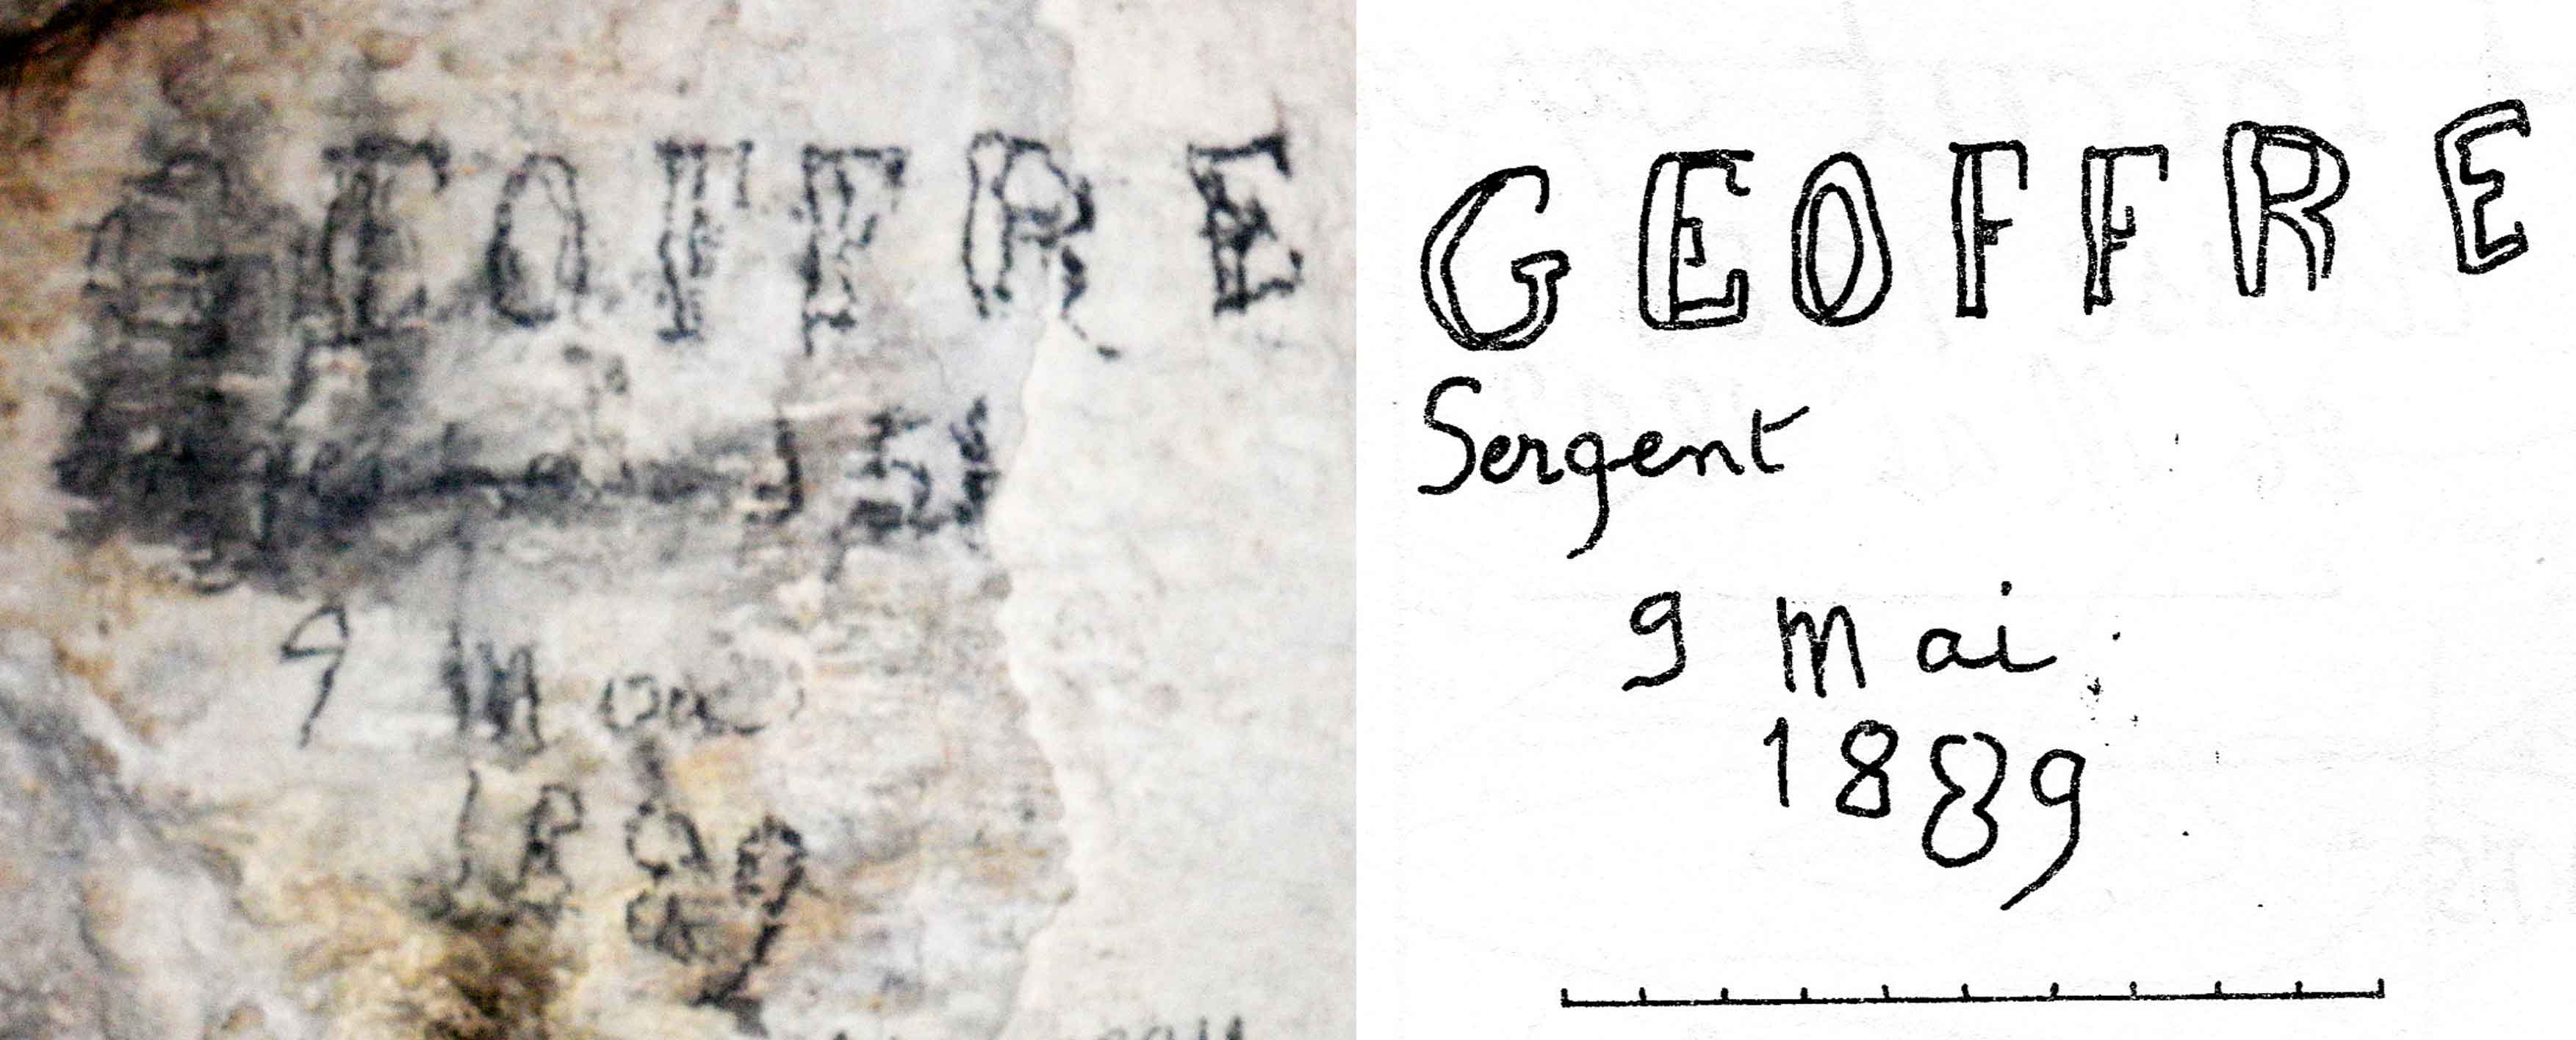 GEOFFRE
9 mai
1889
GEOFFRE
Sergent
9 mai
1889